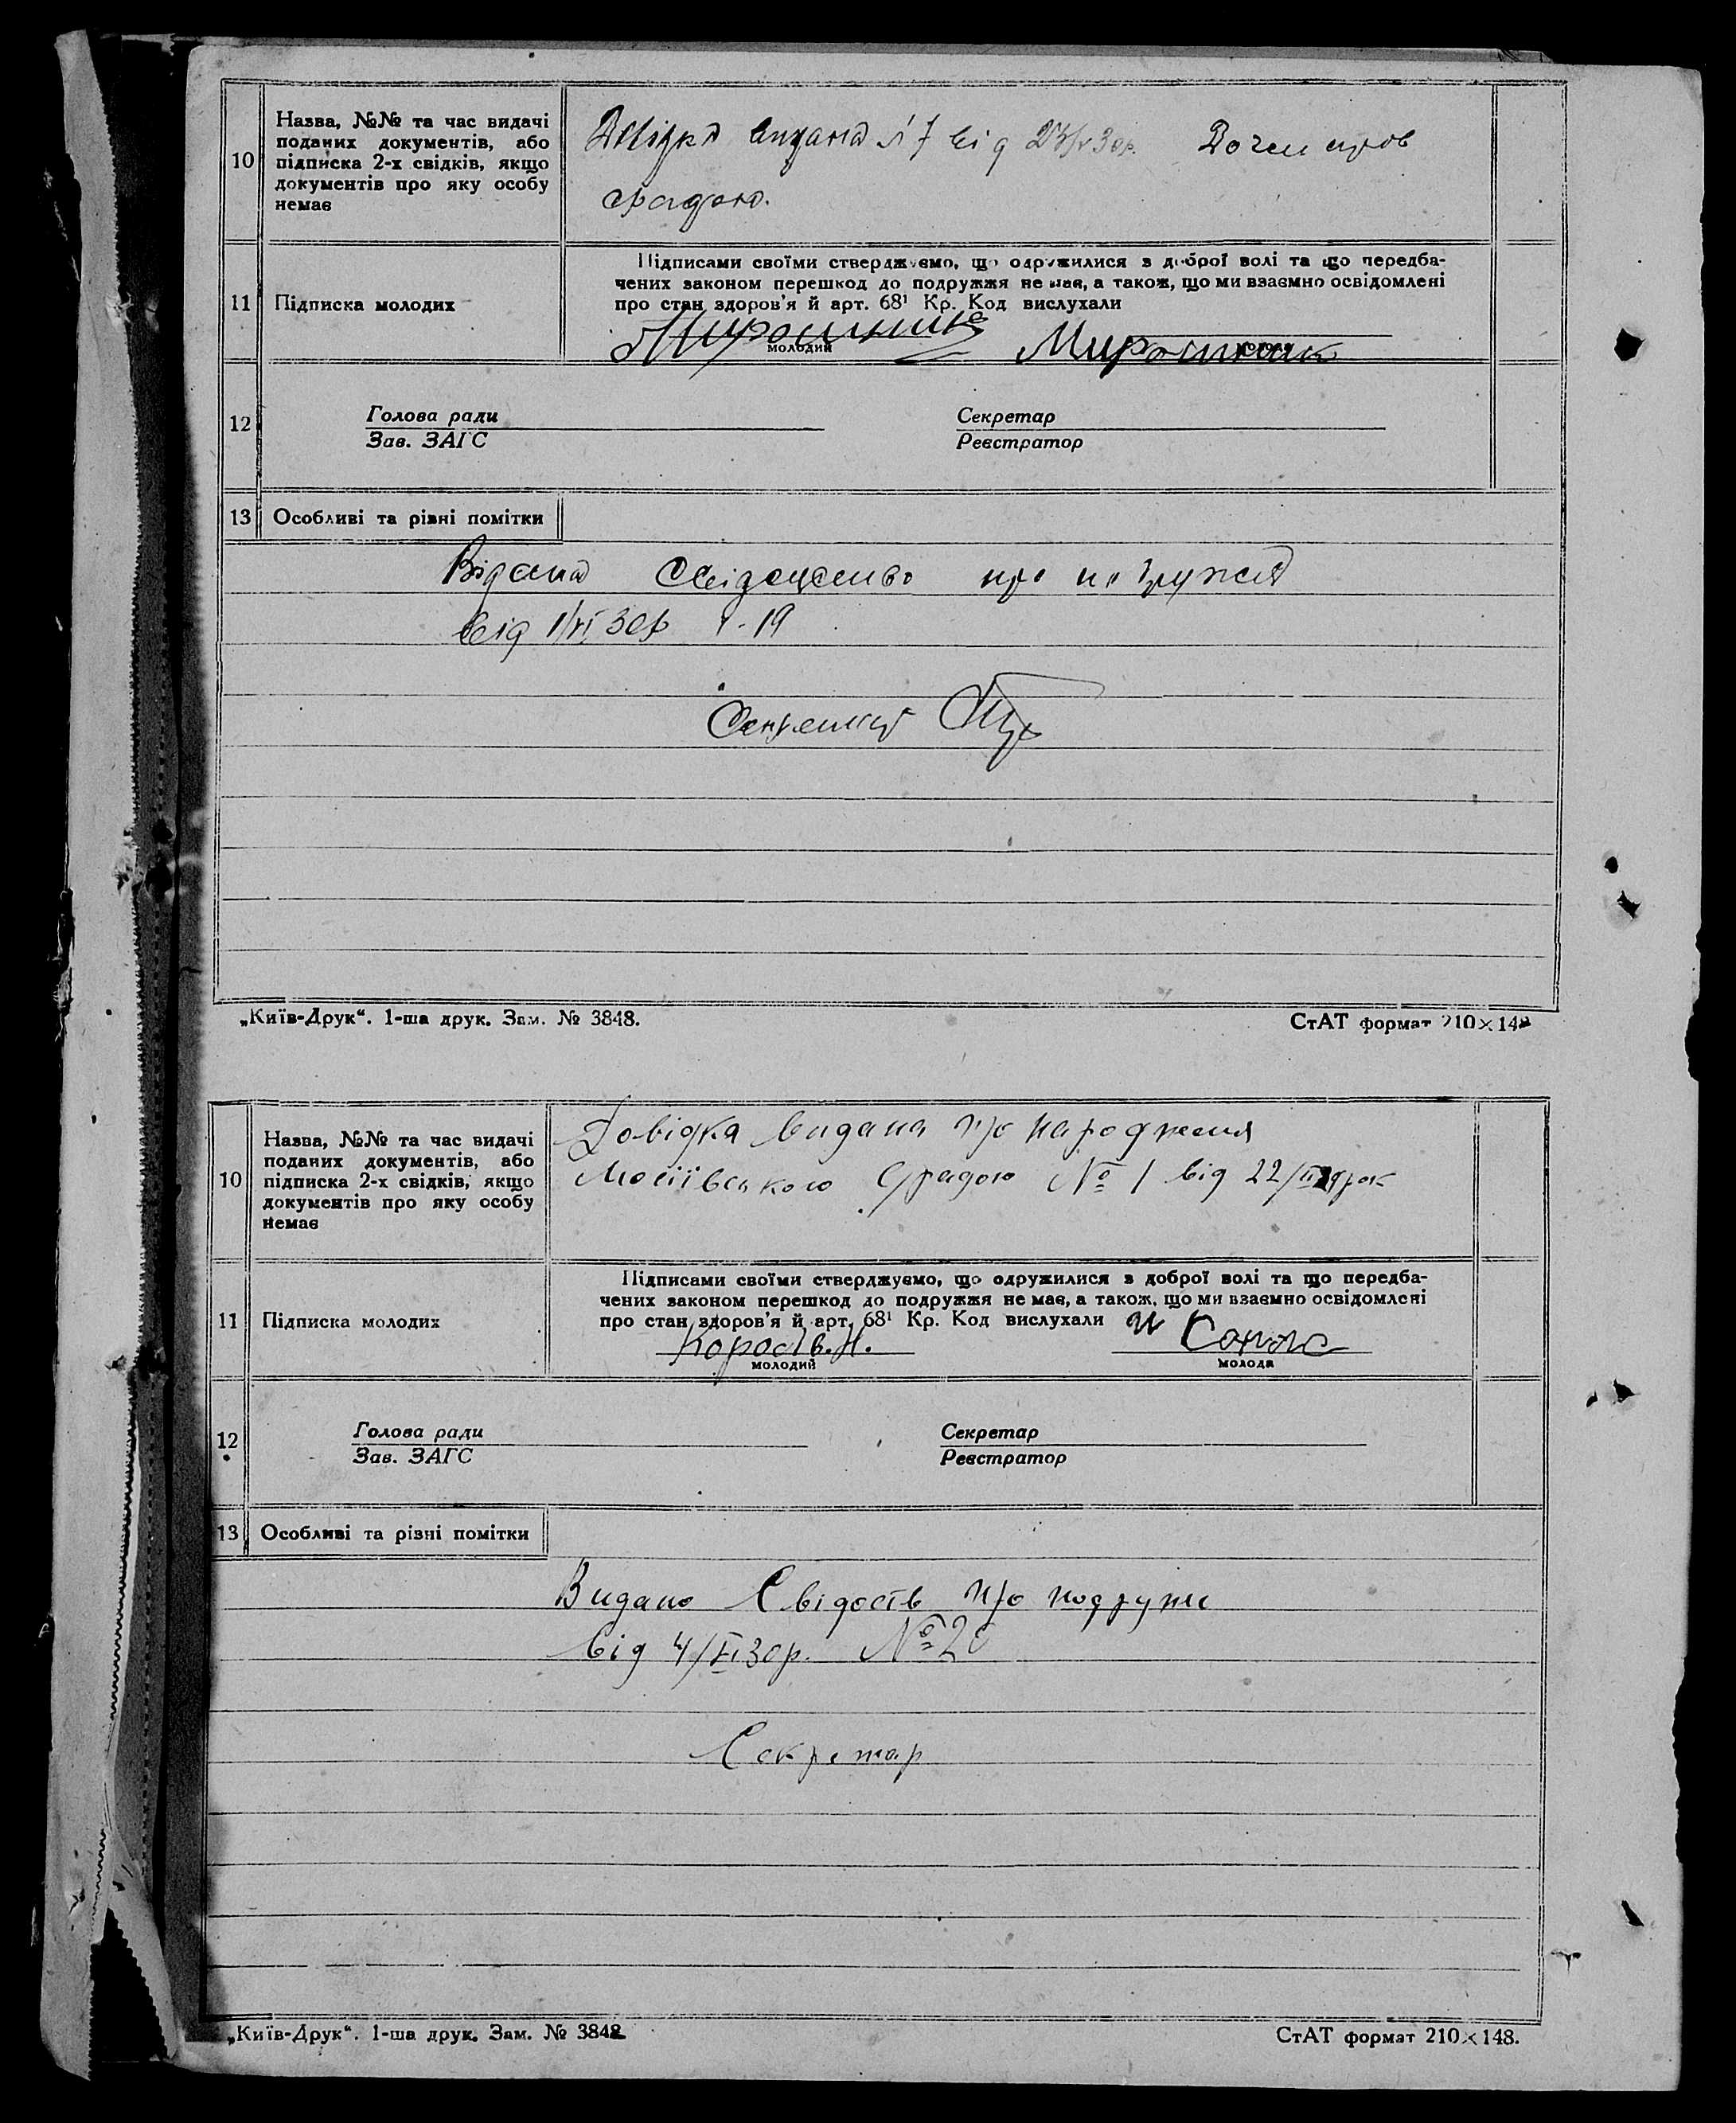 10
Назва, №№ та час видачі
поданих документів, або
підписка 2-х свідків, якщо
документів про яку особу
немає
Довідка видана № 7 від 23/V 30р.
срадою.
11
Підписка молодих
Підписами своїми стверджуємо, що одружилися з доброї волі та що передба-
чених законом перешкод до подружжя не має, а також, що ми взаємно освідомлені
про стан здоров'я й арт. 68¹ Кр. Код вислухали
Мирошник
Мирошник
молодий
молода
12
Голова ради
Секретар
Зав. ЗАГС
Реєстратор
13
Особливі та різні помітки
Відана свідоцтво про подружжя
від 1/VI 30р 19
Секретар
„Київ-Друк“. 1-ша друк. Зам. № 3848.
СтАТ формат 210×148
10
Назва, №№ та час видачі
поданих документів, або
підписка 2-х свідків, якщо
документів про яку особу
немає
Довідка видана про народження
Мосіївською Срадою № 1 від 22/
11
Підписка молодих
Підписами своїми стверджуємо, що одружилися з доброї волі та що передба-
чених законом перешкод до подружжя не має, а також, що ми взаємно освідомлені
про стан здоров'я й арт. 68¹ Кр. Код вислухали
молодий
молода
12
Голова ради
Секретар
Зав. ЗАГС
Реєстратор
13
Особливі та різні помітки
Видано Свідоств про подружж
від 4/VI 30р. № 20
Секретар
„Київ-Друк“. 1-ша друк. Зам. № 3848
СтАТ формат 210×148.